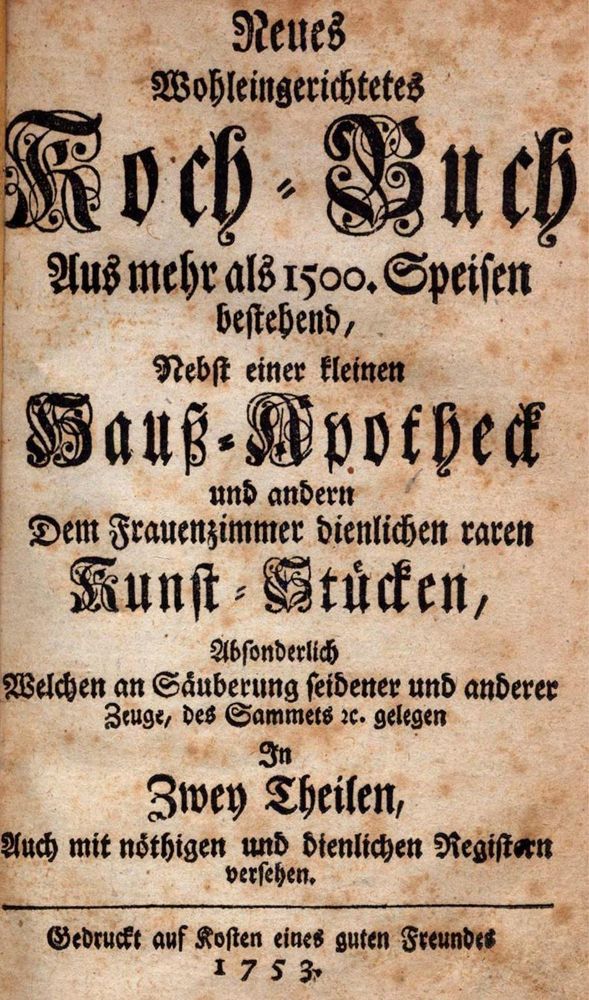 Neues
Wohleingerichtetes
Koch-Buch
Aus mehr als 1500. Speisen
bestehend,
Nebst einer kleinen
Hauß-Apotheck
und andern
Dem Frauenzimmer dienlichen raren
Kunst-Stücken,
Absonderlich
Welchen an Säuberung seidener und anderer
Zeuge, des Sammets ꝛc. gelegen
In
Zwey Theilen,
Auch mit nöthigen und dienlichen Registern
versehen.
Gedruckt auf Kosten eines guten Freundes
1753.